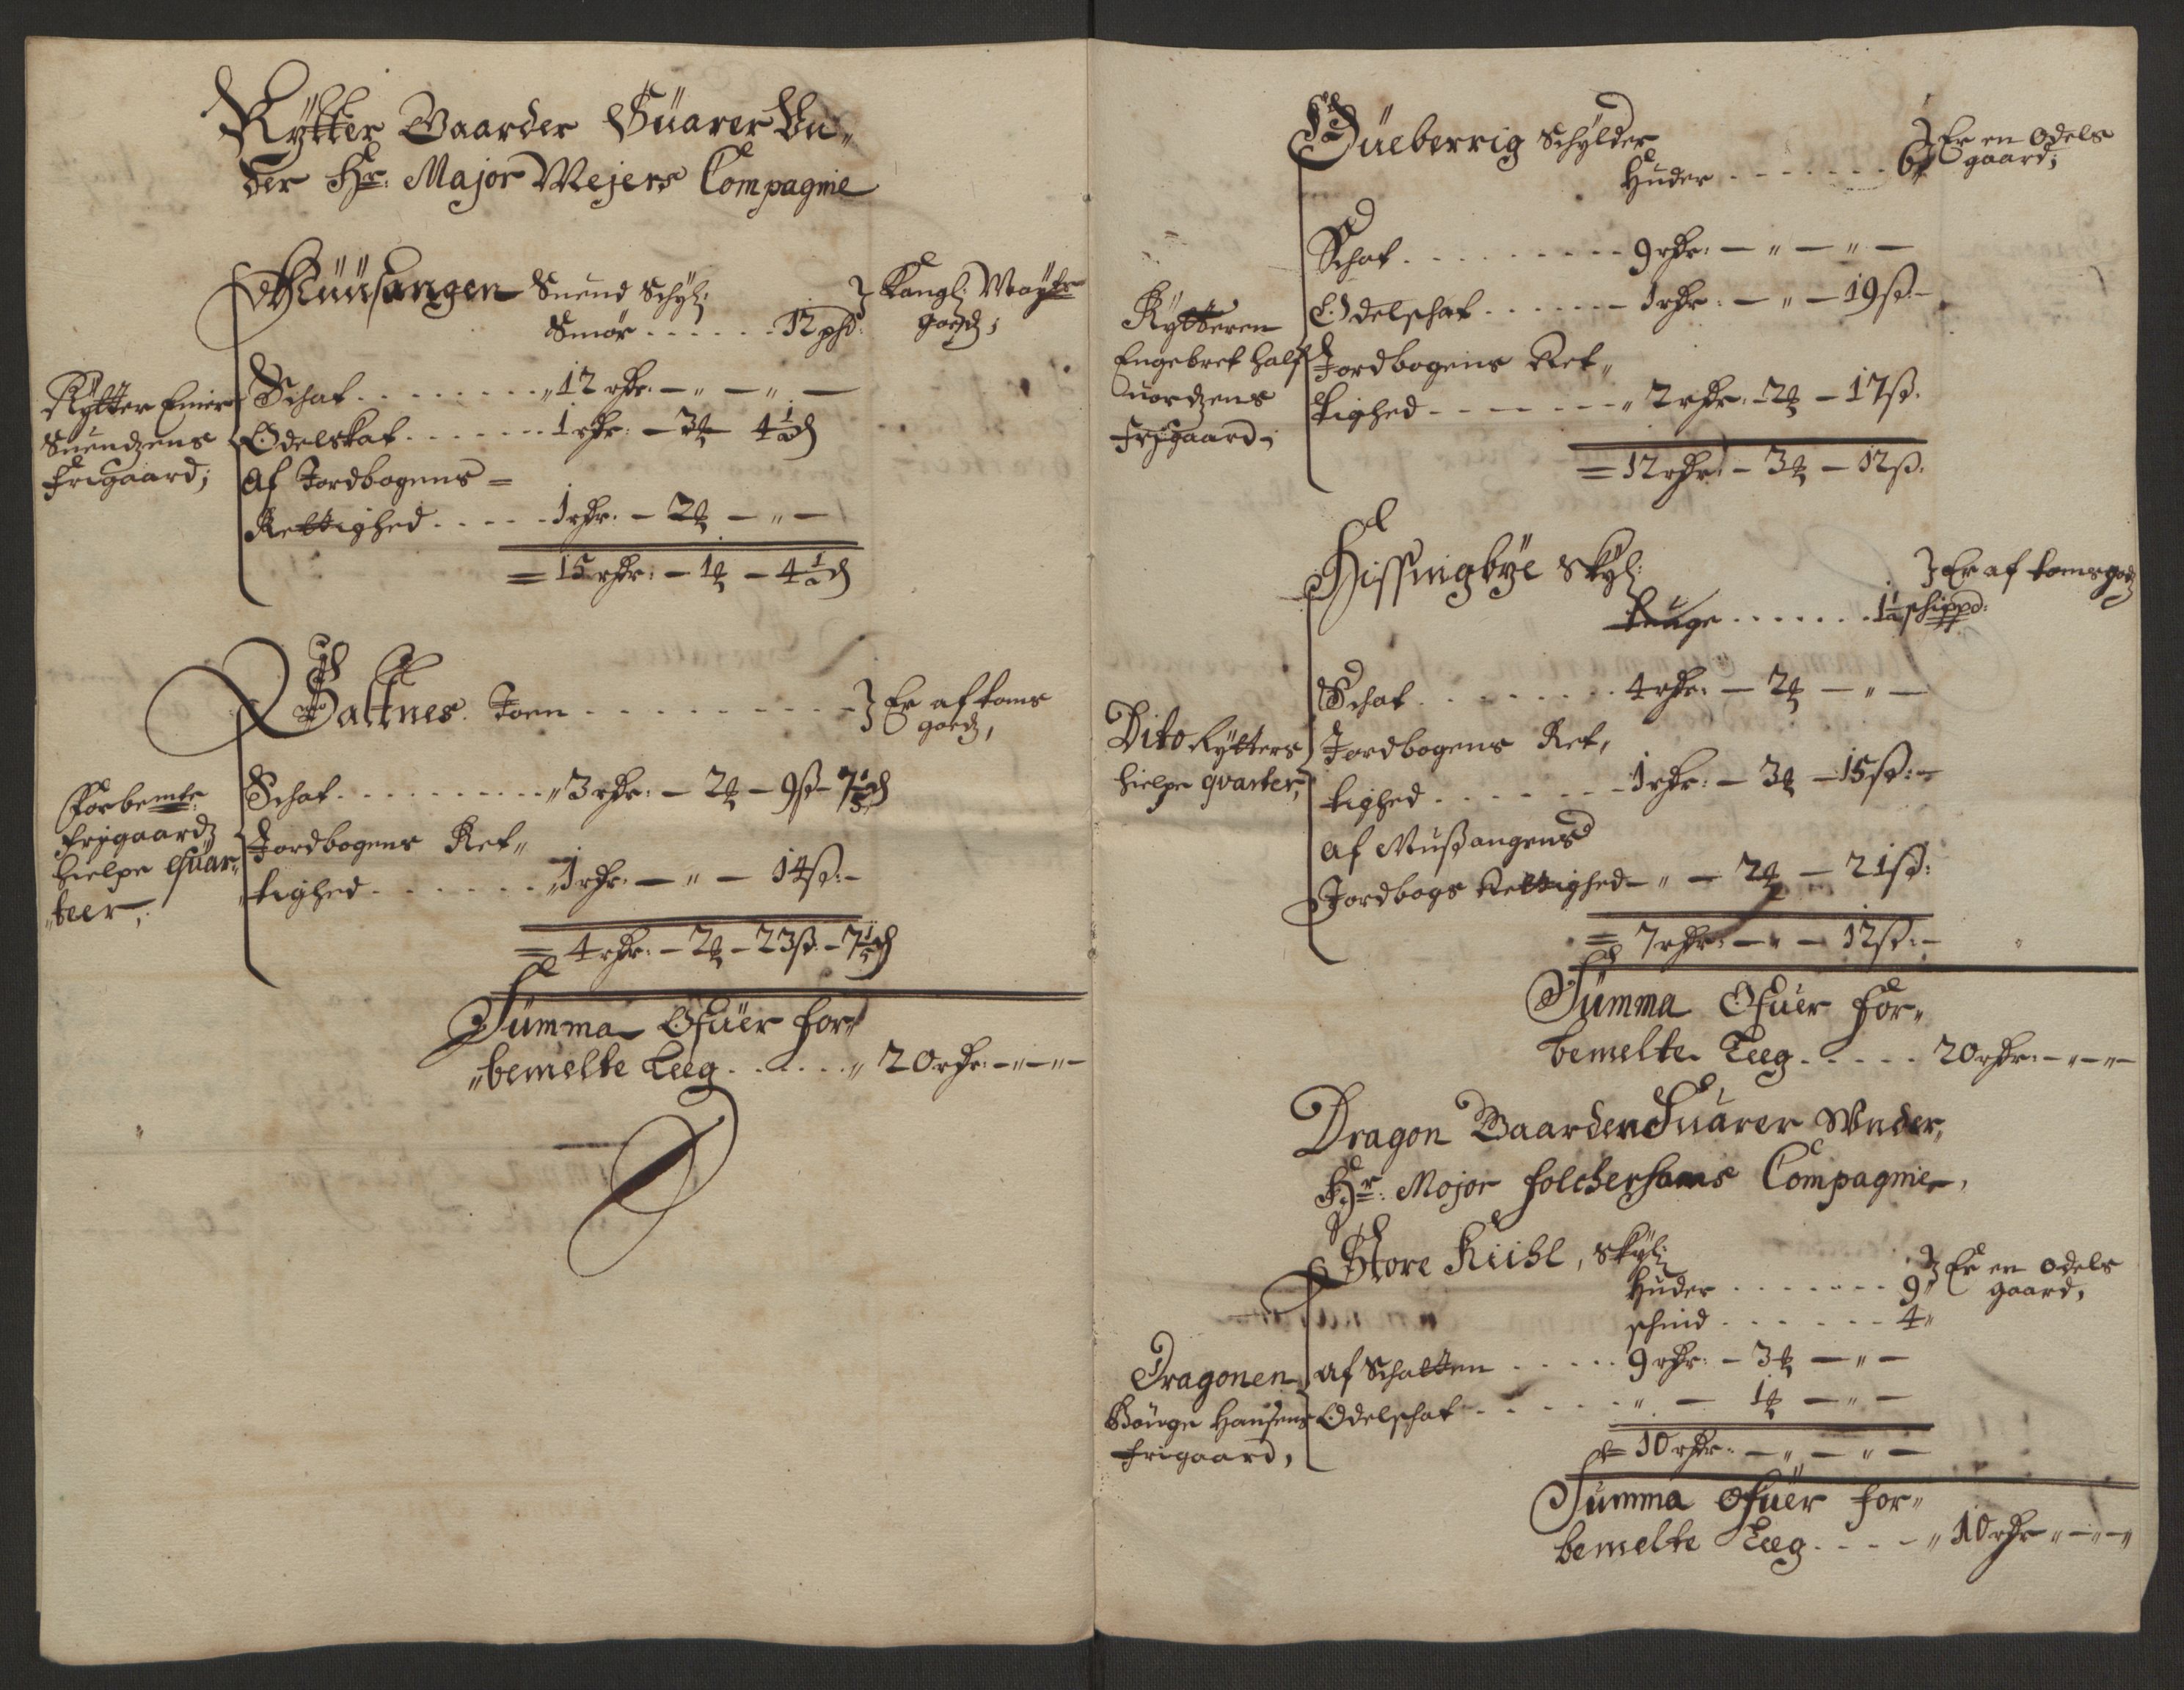 Rytter Gaarder Suarer Un„
der Hr: Major Mejers Compagnie
Muusangen Suend Schyl:
Smør . . . . . . 12 pd:
Kongl: Mayts
goedz;
Rytter Einer
Suendzens
Frigaard;
Schat . . . . . . . . „12 rdr: — „ — „ —
Odelskat . . . . . . 1 rdr: — 3 ort 4½ d
af Jordbogens =
Rettighed . . . . . 1 rdr. — 2 ort — „ —
= 15 rdr: — 1 ort — 4½ d
Battnes. Joen . . . . . . . . . .
Er af toms
goedz,
Forbemte
frygaardz
hielpe Quar„
„teer,
Schat . . . . . . . . . „3 rdr: — 2 ort — 9 ß — 7⅕ d
Jordbogens Ret„
„tighed . . . . . . „1 rdr. — „ — 14 ß: —
= 4 rdr: — 2 ort — 23 ß. — 7⅕ d
Summa Ofuer for„
„bemelte Leeg . . . . . „ 20 rdr: — „ — „ —
Tueberrig Schylder
Huder . . . . . . . 6„
Er en odels
gaard;
Rytteren
Engebret half
uordzens
Frygaard;
Schat . . . . . . . . . 9 rdr: — „ — „ —
Odelschat . . . . . . 1 rdr: — „ — 19 ß: —
Jordbogens Ret„
tighed . . . . . . „ 2 rdr. — 2 ort — 17 ß.
= 12 rdr: — 3 ort — 12 ß.
Hissingbye Skyl:
tunge . . . . . . . 1½ schippd:
Er af tomsgodz
Dito Rytters
hielpe qvarter,
Schat . . . . . . . . 4 rdr: — 2 ort — „ —
Jordbogens Ret,
tighed . . . . . . . 1 rdr: — 3 ort — 15 ß: —
af Mussangens
Jordbogs Rettighed — „ — 2 ort — 21 ß:
= 7 rdr: — „ — 12 ß: —
Summa Ofuer for„
bemelte Leeg . . . . . 20 rdr: — „ — „ —
Dragon Gaarder Suarer Under,
Hr: Major Folchersams Compagnie,
Store Kiihl, Skyl:
Huder . . . . . . . 9„
schind . . . . . . 4„
Er en odels
gaard,
Dragonen
Houge Hansens
Frigaard,
af Schatten . . . . . 9 rdr: — 3 ort — „ —
Odelschat . . . . . „. — 1 ort — „ —
= 10 rdr: — „ — „ —
Summa Ofuer for„
bemelte Leeg . . . . „ 10 rdr „ — „ — „